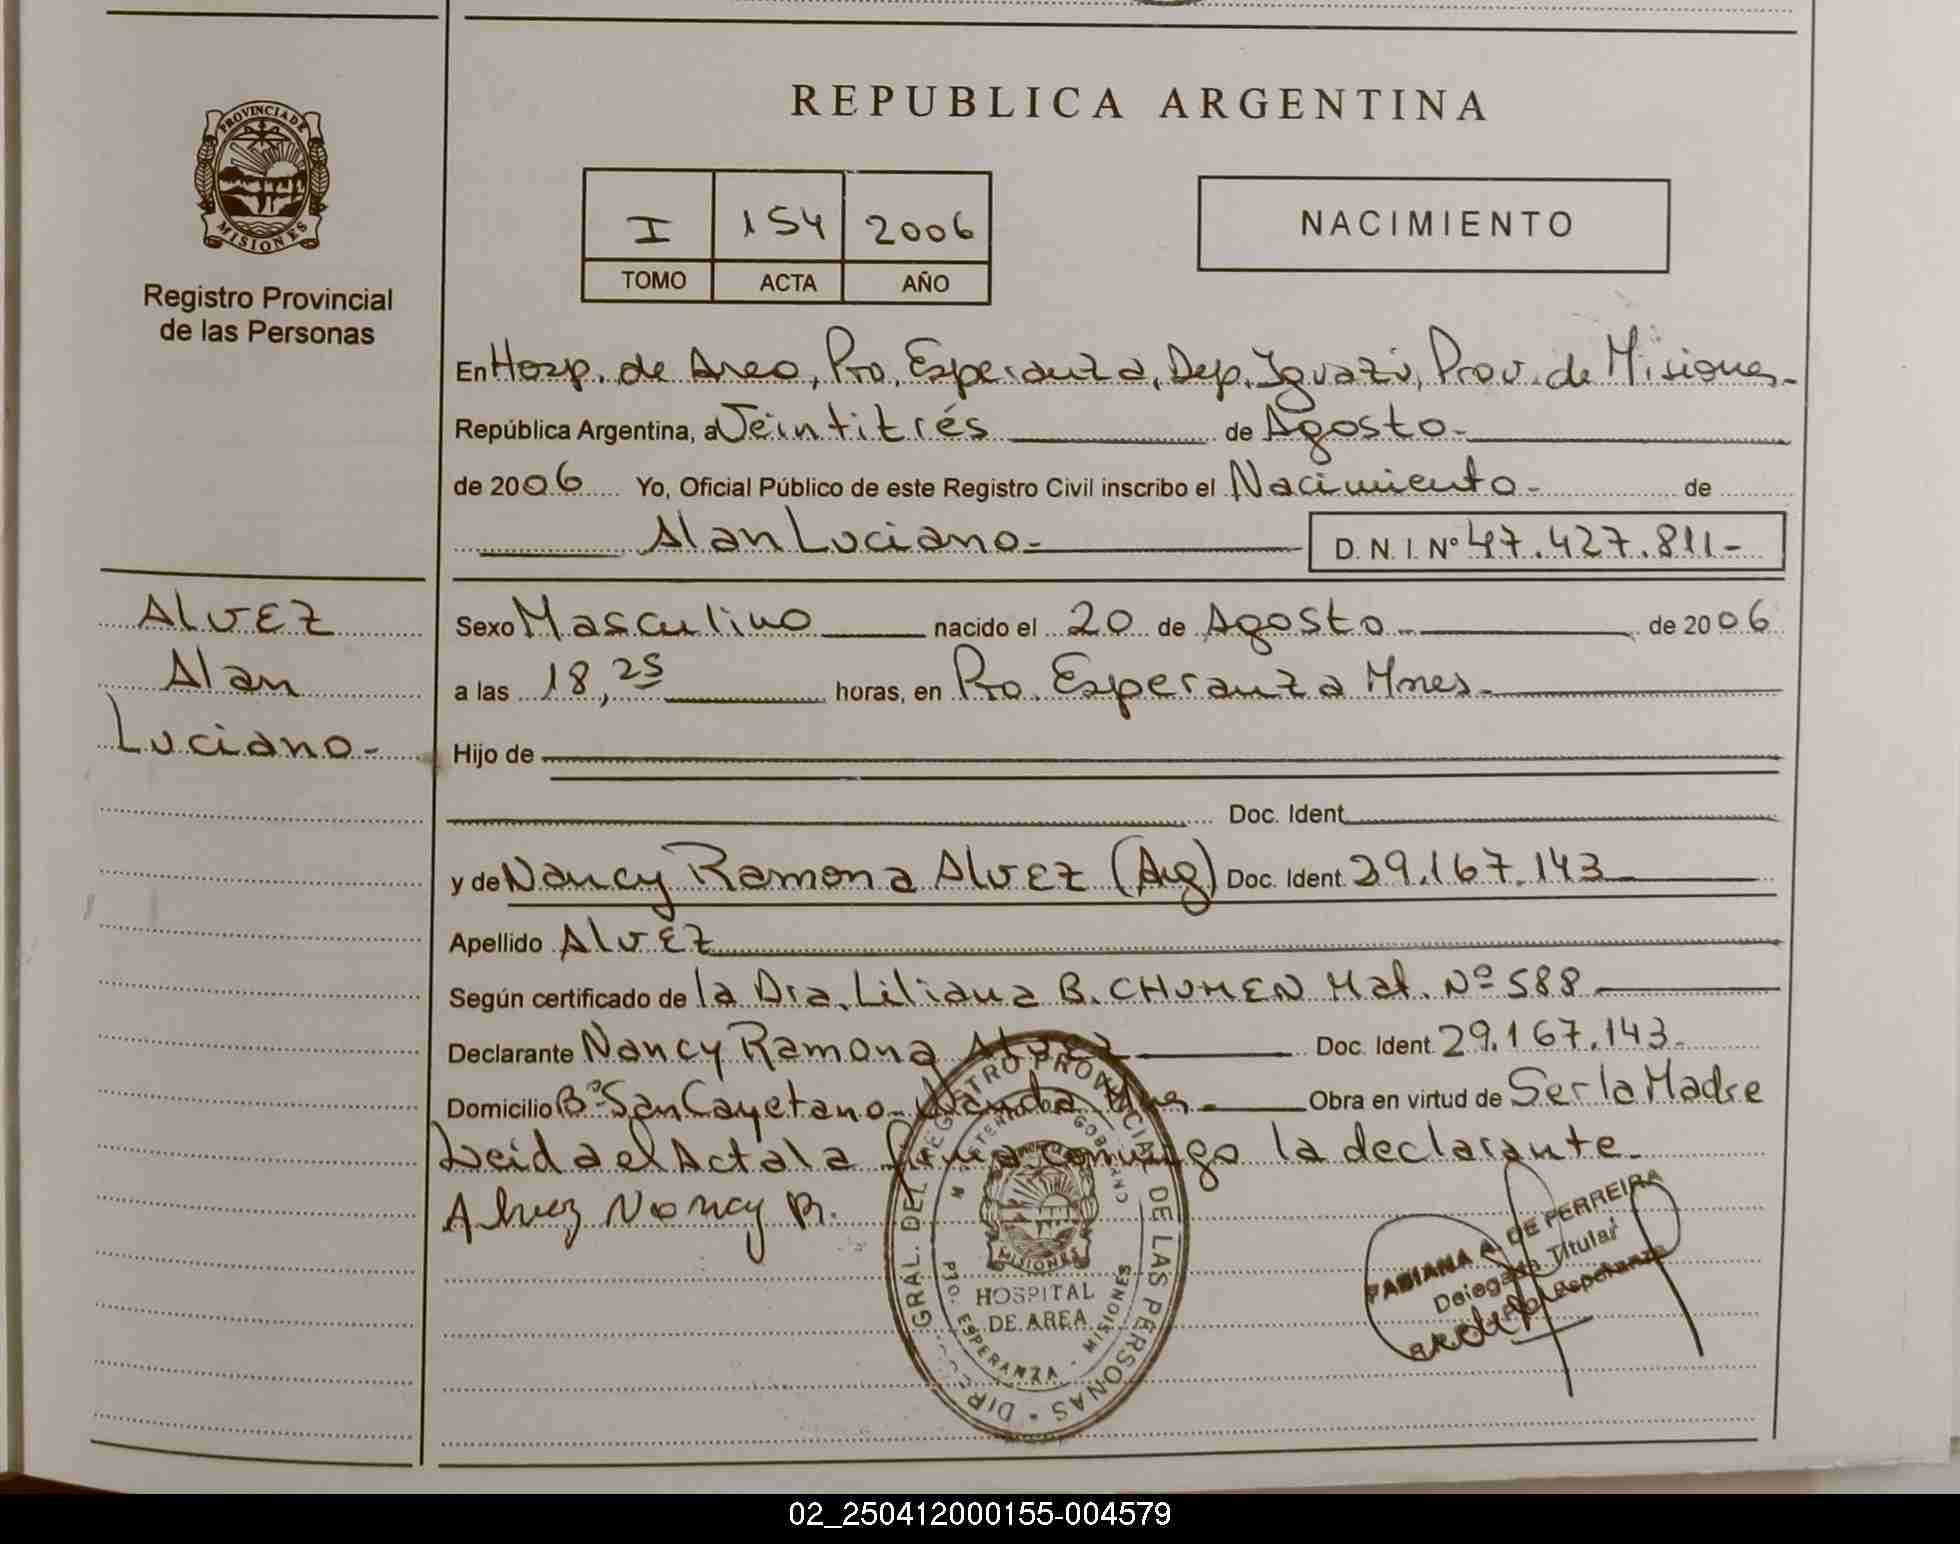 REPUBLICA ARGENTINA
PROVINCIA DE
MISIONES
Registro Provincial
de las Personas
I 154 2006
TOMO ACTA AÑO
NACIMIENTO
En Hosp. de Area, Pto. Esperanza, Dep. Iguazú, Prov. de Misiones-
República Argentina, a Veintitrés de Agosto-
de 2006 Yo, Oficial Público de este Registro Civil inscribo el Nacimiento- de
Alan Luciano- D. N. I. Nº 47.427.811-
ALVEZ
Alan
Luciano-
Sexo Masculino nacido el 20 de Agosto- de 2006
a las 18,25 horas, en Pto. Esperanza Mnes-
Hijo de
Doc. Ident.
y de Nancy Ramona Alvez (Arg) Doc. Ident. 29.167.143
Apellido Alvez
Según certificado de la Dra. Liliana B. CHUMEN Mat. Nº 588
Declarante Nancy Ramona Alvez Doc. Ident. 29.167.143-
Domicilio Bº San Cayetano- Wanda Mnes- Obra en virtud de Ser la Madre
Leida el Acta la firma conmigo la declarante-
Alvez Nancy R.
DIR. GRAL. DEL REGISTRO PROVINCIAL DE LAS PERSONAS
HOSPITAL
DE AREA
PTO. ESPERANZA - MISIONES
MISIONES
FABIANA A. DE FERREIRA
Delegada Titular
Pto. Esperanza
02_250412000155-004579